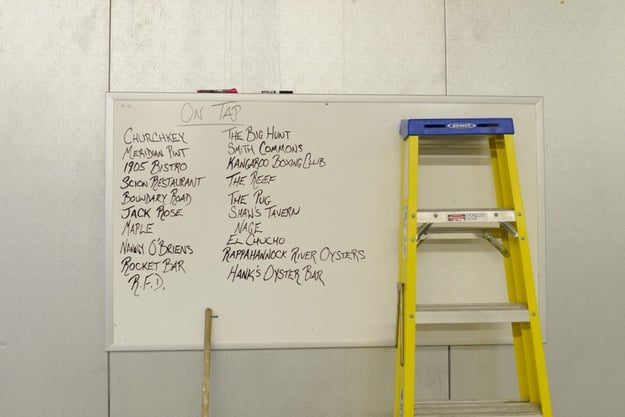 ON TAP
CHURCHKEY
MERIDIAN PINT
1905 BISTRO
SCION RESTAURANT
BOUNDARY ROAD
JACK ROSE
MAPLE
NANNY O'BRIENS
ROCKET BAR
R.F.D.
THE BIG HUNT
SMITH COMMONS
KANGAROO BOXING CLUB
THE REEF
THE PUG
SHAW'S TAVERN
NAGE
EL CHUCHO
RAPPAHANNOCK RIVER OYSTERS
HANK'S OYSTER BAR